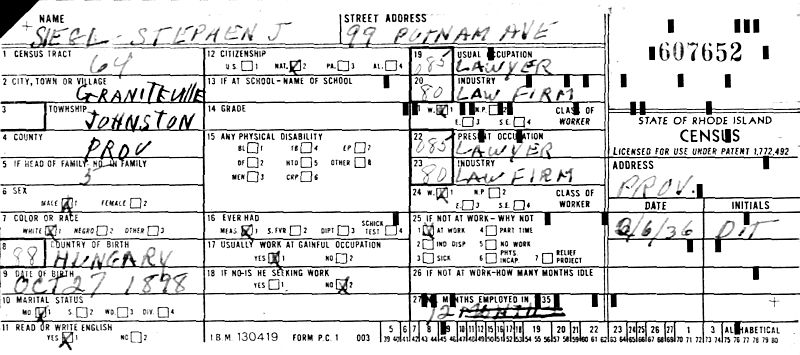 NAME SIEGL - STEPHEN J
STREET ADDRESS 99 PUTNAM AVE
1 CENSUS TRACT 64
2 CITY, TOWN OR VILLAGE GRANITEVILLE
3 TOWNSHIP JOHNSTON
4 COUNTY PROV
5 IF HEAD OF FAMILY NO. IN FAMILY 5
6 SEX
MALE 1 FEMALE 2
7 COLOR OR RACE
WHITE 1 NEGRO 2 OTHER 3
8 88 COUNTRY OF BIRTH HUNGARY
9 DATE OF BIRTH OCT 27 1898
10 MARITAL STATUS
MD 1 S. 2 WD. 3 DIV. 4
11 READ OR WRITE ENGLISH
YES 1 NO 2
12 CITIZENSHIP
U.S. 1 NAT. 2 PA. 3 AL. 4
13 IF AT SCHOOL - NAME OF SCHOOL
14 GRADE
15 ANY PHYSICAL DISABILITY
BL 1 TB 4 EP 7
DF 2 NTD 5 OTHER 8
MEN 3 CRP 6
16 EVER HAD SCHICK
MEAS. 1 S. FVR 2 DIPT 3 TEST 4
17 USUALLY WORK AT GAINFUL OCCUPATION
YES 1 NO 2
18 IF NO-IS HE SEEKING WORK
YES 1 NO 2
I.B.M. 130419 FORM P.C. 1 003
19 085 USUAL OCCUPATION LAWYER
20 80 INDUSTRY LAW FIRM
21 W. 1 N.P. 2 CLASS OF
E. 3 S.E. 4 WORKER
22 085 PRESENT OCCUPATION LAWYER
23 80 INDUSTRY LAW FIRM
24 W. 1 N.P. 2 CLASS OF
E. 3 S.E. 4 WORKER
25 IF NOT AT WORK - WHY NOT
1 AT WORK 4 PART TIME
2 IND DISP 5 NO WORK
3 SICK 6 PHYS INCAP 7 RELIEF PROJECT
26 IF NOT AT WORK-HOW MANY MONTHS IDLE
27 MONTHS EMPLOYED IN 1935
12
607652
STATE OF RHODE ISLAND
CENSUS
LICENSED FOR USE UNDER PATENT 1,772,492
ADDRESS
PROV.
DATE INITIALS
2/6/36 DIT
ALPHABETICAL